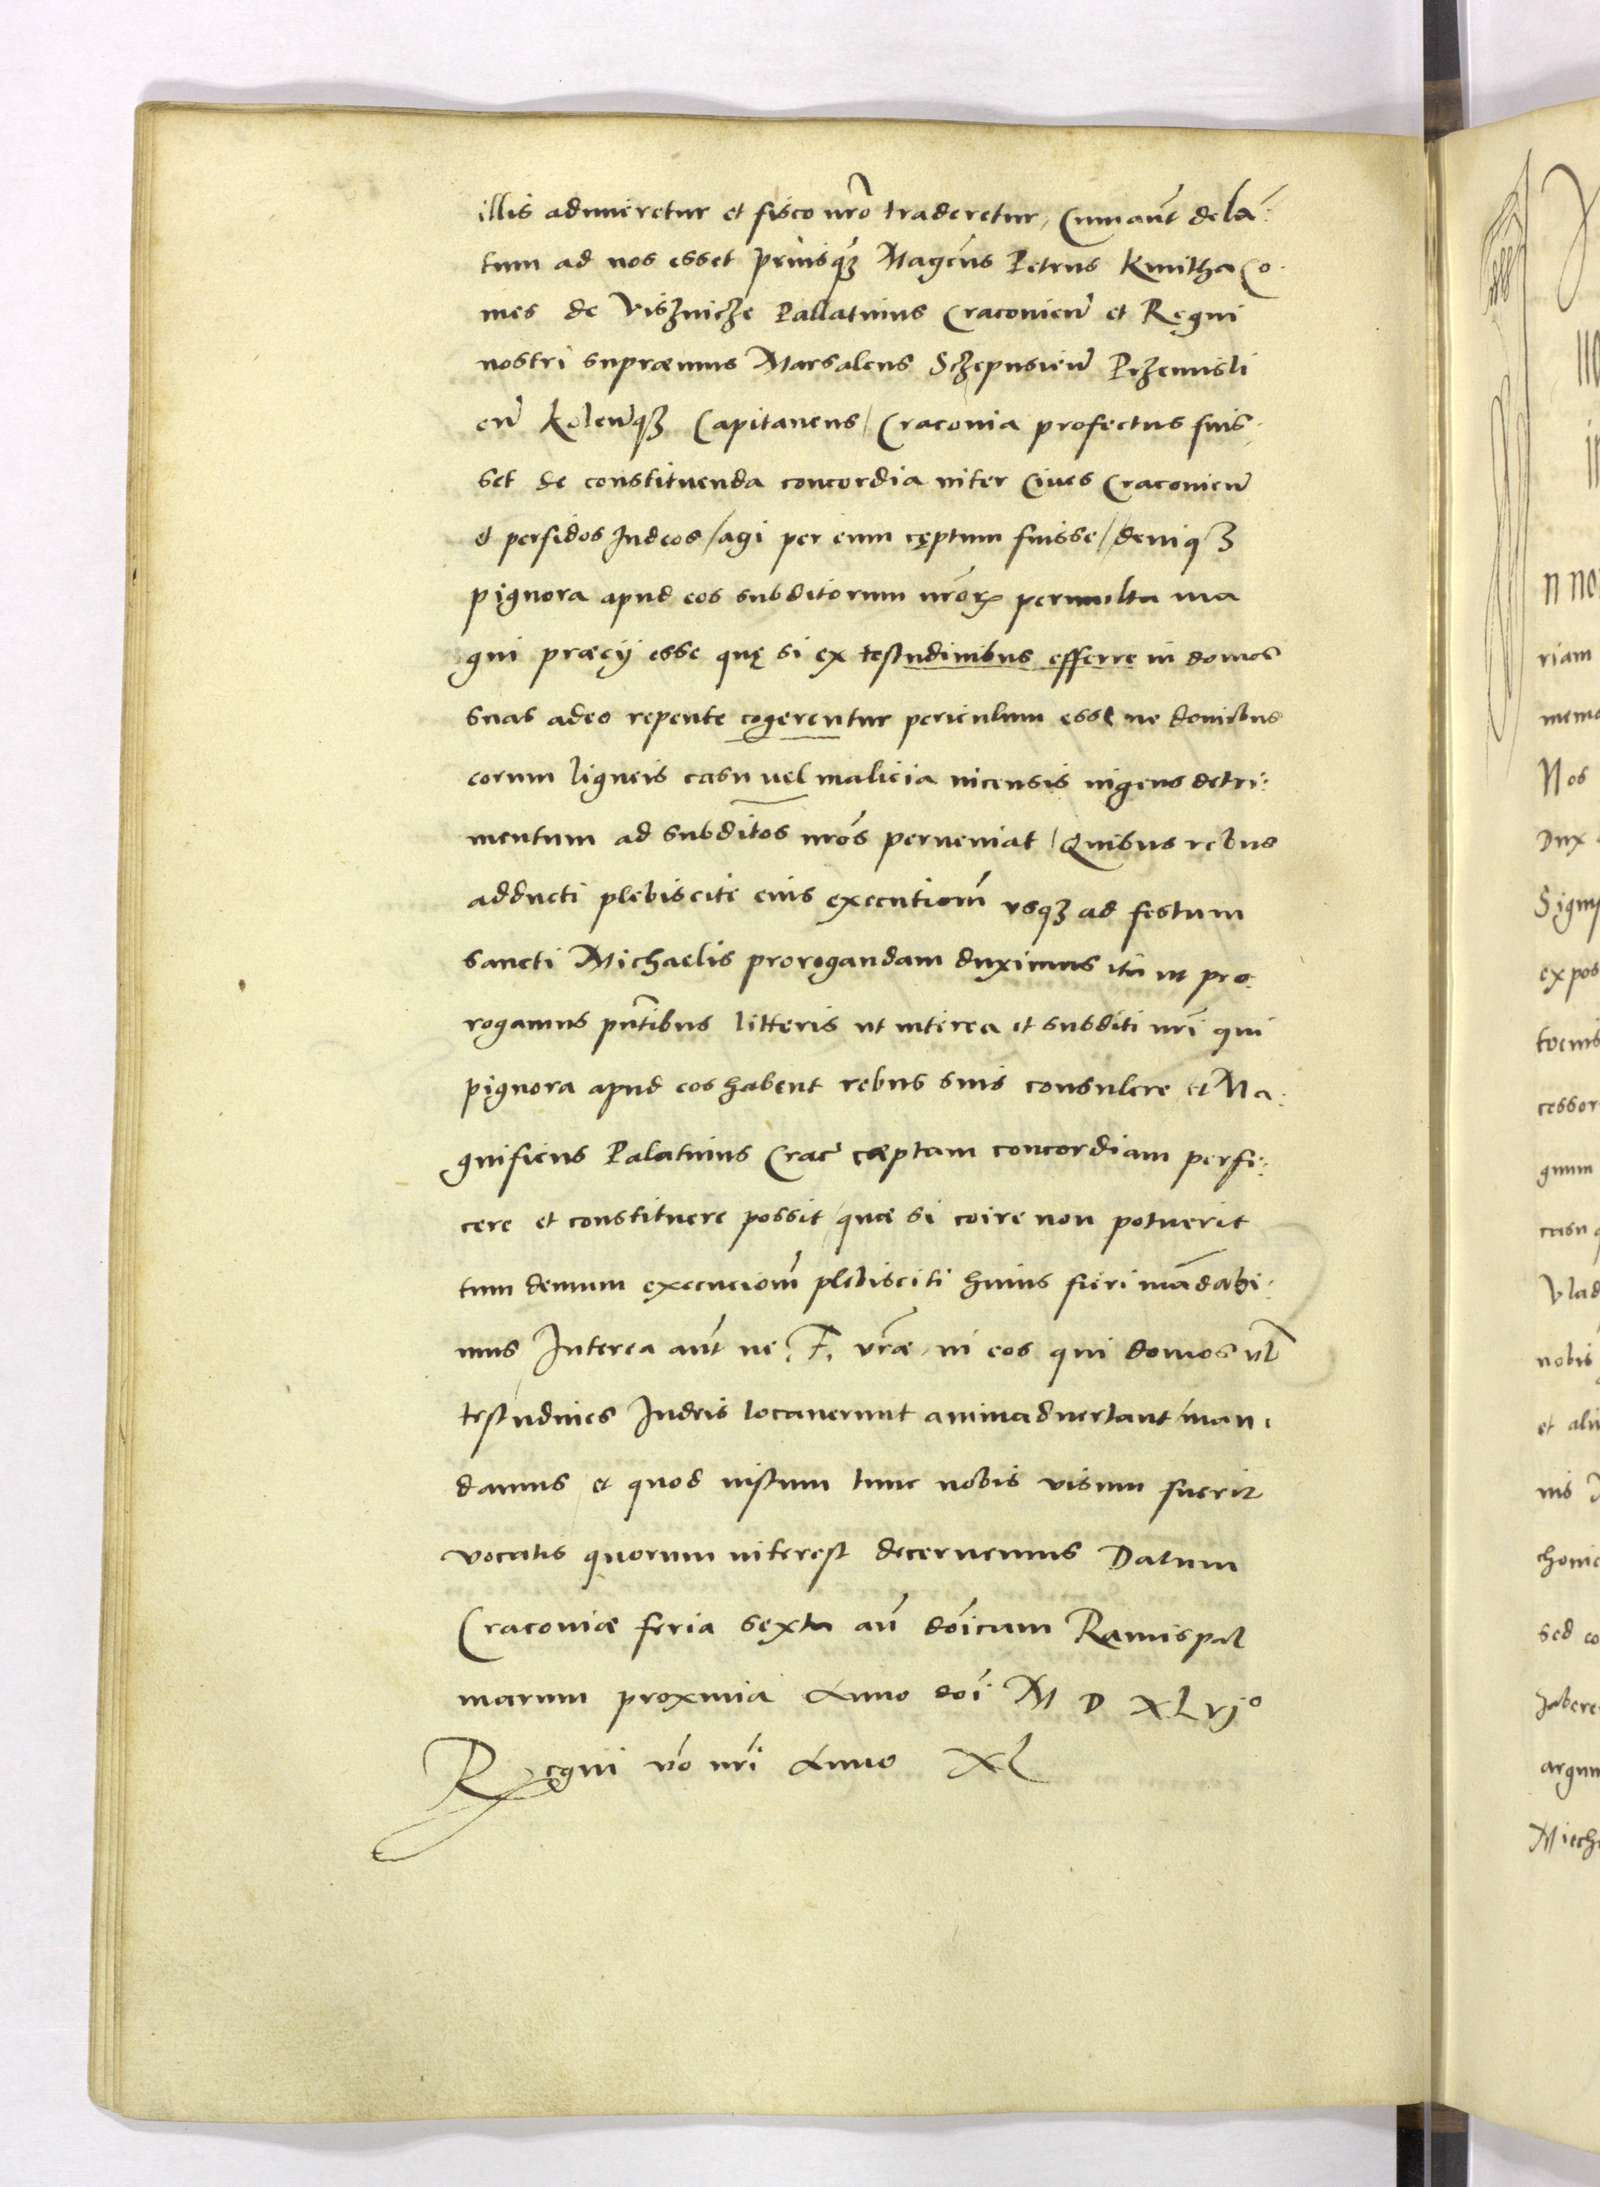 illis adimeretur et fisco nr̃o traderetur, Cum aut̃ dela-
tum ad nos esset priusqȝ Magcus Petrus Kmitha Co-
mes de Visznicze Pallatinus Cracovien̄ et Regni
nostri supræmus Marsalcus Sczepusien̄ Przemisli
en̄ Kolen̄qȝ Capitaneus / Cracovia profectus fuis-
set de constituenda concordia inter Cives Cracovien̄
et perfidos Judeos / agi per eum cęptum fuisse / deniqȝ
pignora apud eos subditorum nr̃orꝝ permulta ma
gni præcij esse quę si ex testudinibus efferre in domos
suas adeo repente cogerentur periculum esse ne domibus
eorum ligneis casu vel malicia incensis ingens detri-
mentum ad subditos nr̃os perveniat / Quibus rebus
adducti plebisciti eius executiom̃ vsqȝ ad festum
sancti Michaelis prorogandam duximus ita ut pro-
rogamus pn̄tibus litteris ut interea et subditi nr̃i qui
pignora apud eos habent rebus suis consulere et Ma-
gnificus Palatinus Crac̄ cæptam concordiam perfi-
cere et constituere possit / quæ si coire non potuerit
tum demum execuciom̃ plebisciti huius fieri mādabi-
mus Interea aut̃ ne .F. vr̃æ in eos qui domos vl̄
testudines Judeis locaverunt animadvertant man-
damus / et quod iustum tunc nobis visum fuerit
vocatis quorum interest decernemus Datum
Cracoviæ feria sexta an̄ dōicam Ramispal
marum proxima Anno dōi M D XLvjº
Regni vo nr̃i Anno XL